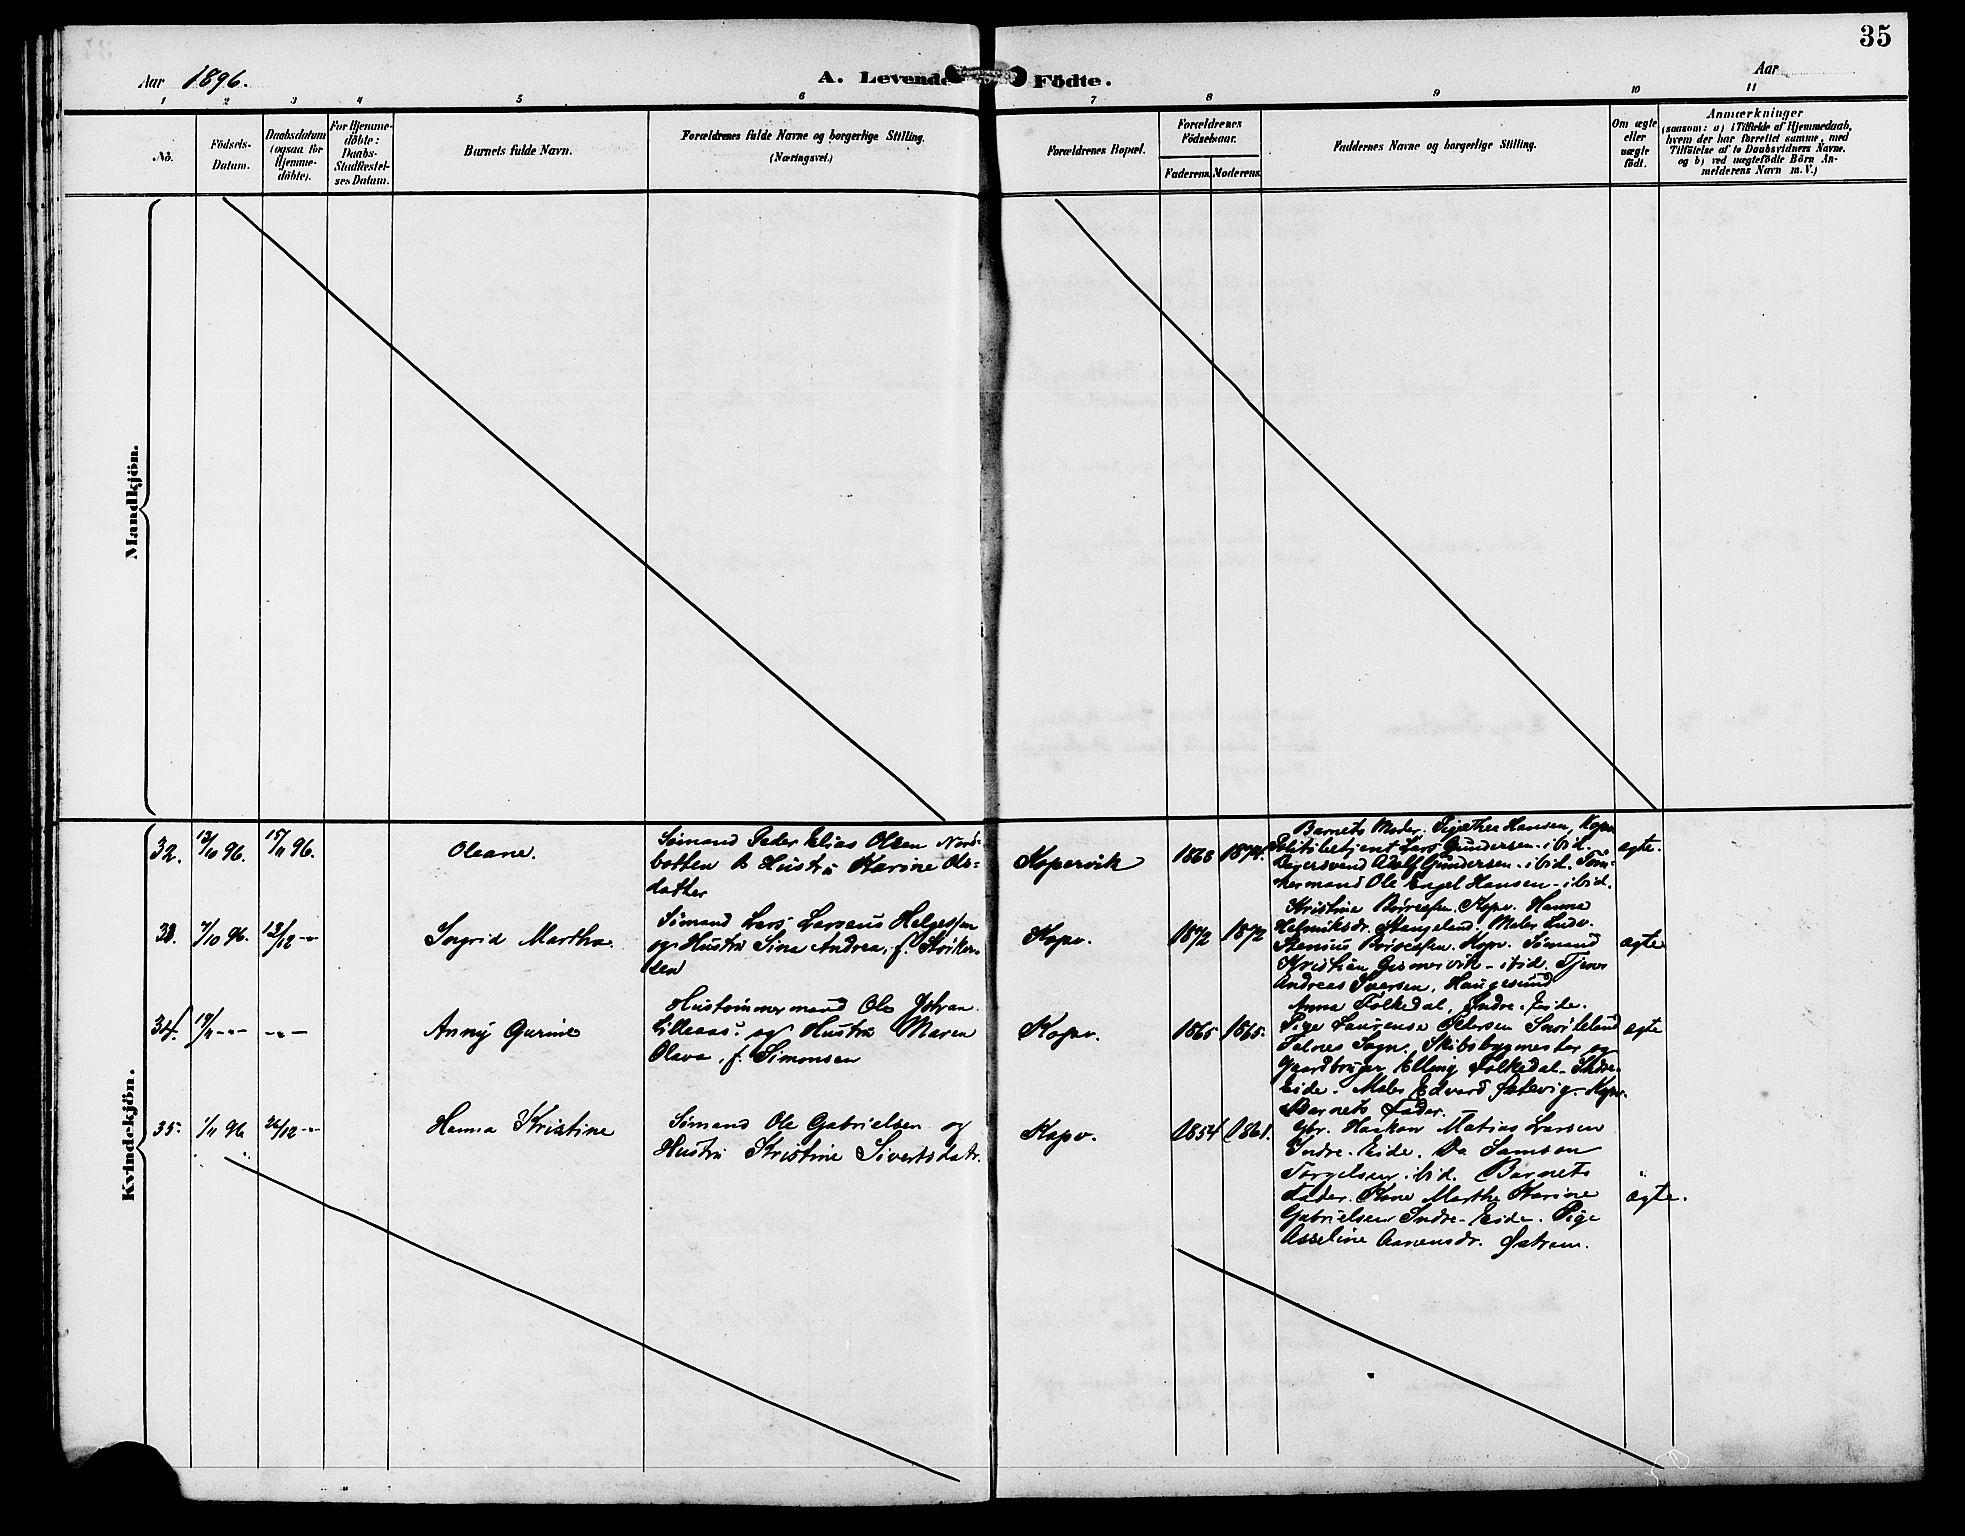 35
Aar 1896.
A. Levende Födte.
Aar
1 2 3 4 5 6 7 8 9 10 11
No.
Födsels-
Datum.
Daabsdatum
(ogsaa for
Hjemme-
döbte).
For Hjemme-
döbte:
Daabs-
Stadfæstel-
ses Datum.
Barnets fulde Navn.
Forældrenes fulde Navne og borgerlige Stilling.
(Næringsvei.)
Forældrenes Bopæl.
Forældrenes
Födselsaar.
Faderens. Moderens.
Faddernes Navne og borgerlige Stilling.
Om ægte
eller
uægte
födt.
Anmærkninger
(saasom: a) i Tilfælde af Hjemmedaab,
hvem der har forrettet samme, med
Tilföielse af to Daabsvidners Navne,
og b) ved uægtefödte Börn An-
melderens Navn m. V.)
Mandkjön.
Kvindekjön.
32.
13/10 96.
15/11 96.
Oleane.
Sømand Peder Elias Olsen Nord-
botten & Hustru Karine Ols-
datter
Kopervik
1868
1874.
Barnets Moder. Pige Thea Hansen, Kopv.
Politibetjent Lars Gundersen - ibid.
Bagersvend Adolf Gundersen - ibid. Tøm-
mermand Ole Engel Hansen - ibid.
ægte.
33.
7/10 96.
13/12 -"-
Ingrid Martha
Sømand Lars Larsenius Helgesen
og Hustru Sina Andrea, f.
Kopv.
1872
1872
Kristine Børresen, Kopv. Hanna
Helmiksdr. Stangeland, Maler Ludv.
Stenius Børresen. Kopv. Sømand
Kristian Gismervik - ibid. Tjener
Andreas Iversen, Haugesund
ægte
34.
19/11 -"-
-"-
Anny Gurine
Hustømmermand Ole Johan
Lilleaas og Hustru Maren
Olava, f. Simonsen
Kopv.
1865
1865.
Anna Folkedal, Indre-Eide.
Pige Laurense Petersen
Falnes Sogn. Skibsbygmester og
Gaardbruger Elling Folkedal - Indre-
Eide. Maler Edvard - Kopv.
Barnets Fader.
ægte
35.
1/11 96
26/12 -"-
Hanna Kristine
Sømand Ole Gabrielsen og
Hustru Kristine Sivertsdatr.
Kopv.
1854
1861.
Gbr. Haakon Matias Larsen
Indre-Eide. Do Samson
Torgelsen ibid. Barnets
Fader. Kone Marthe Karine
Gabrielsen Indre-Eide. Pige
Asseline Aanensdr.
ægte.